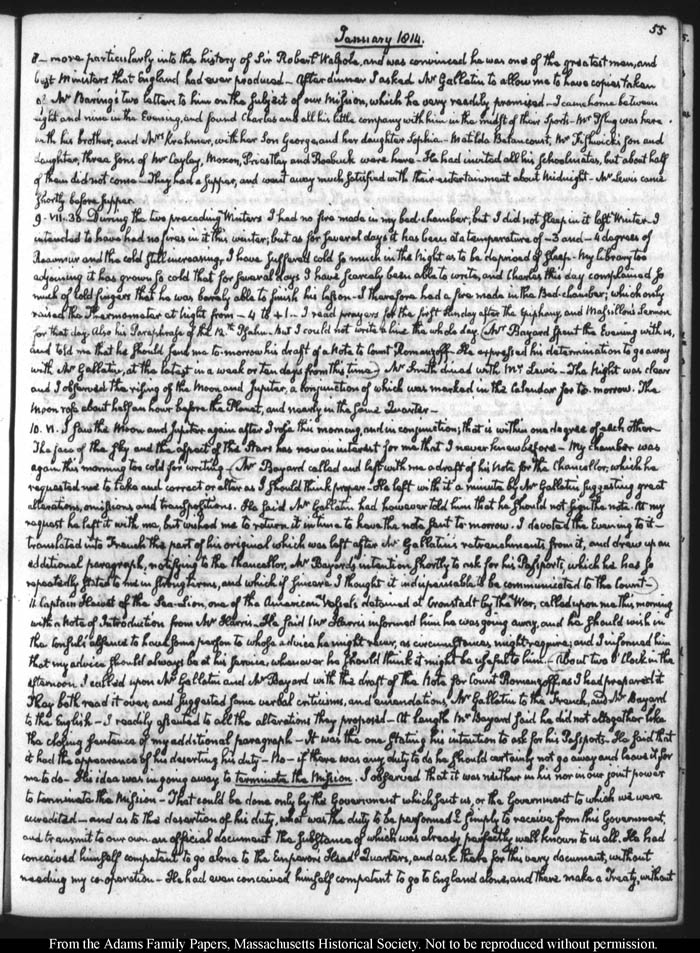 55
January 1814.
8— more particularly into the history of Sir Robert Walpole, and was convinced he was one of the greatest men, and
best Ministers that England had ever produced— After dinner I asked Mr Gallatin to allow me to have copies taken
of Mr Baring's two letters to him on the subject of our Mission, which he very readily promised— I came home between
eight and nine in the Evening, and found Charles and all his little company with him in the midst of their sports— Mr Pflug was here
with his brother, and Mrs Krehmer, with her Son George, and her daughter Sophia— Matilda Betancourt, Mr Fishwick's son and
daughter, three sons of Mr Cayley, Moxon, Priestley and Roebuck were here— He had invited all his schoolmates, but about half
of them did not come— They had a supper, and went away much satisfied with their entertainment about Midnight— Mr Lewis came
shortly before supper
9. VII. 30. During the two preceding Winters I had no fire made in my bed-chamber; but I did not sleep in it last Winter— I
intended to have had no fires in it this winter; but as for several days it has been at a temperature of —3 and —4 degrees of
Reaumur and the cold still increasing, I have suffered cold so much in the Night as to be deprived of sleep— My library too
adjoining it has grown so cold that for several days I have scarcely been able to write, and Charles this day complained so
much of cold fingers that he was barely able to finish his lesson— I therefore had a fire made in the Bed-chamber; which only
raised the Thermometer at Night from —4 to +1— I read prayers for the first Sunday after the Epiphany, and Massillon's Sermon
for that day. Also his Paraphrase of the 12th Psalm. But I could not write a line the whole day. (Mr Bayard spent the Evening with us,
and told me that he should send me to-morrow his draft of a Note to Count Romanzoff— He expressed his determination to go away
with Mr Gallatin, at the latest in a week or ten days from this time) Mr Smith dined with Mr Lewis— The Night was clear
and I observed the rising of the Moon and Jupiter, a conjunction of which was marked in the Calendar for to-morrow. The
Moon rose about half an hour before the Planet, and nearly in the same Quarter—
10. VI. I saw the Moon and Jupiter again after I rose this morning, and in conjunction; that is within one degree of each other—
The face of the Sky and the aspect of the Stars has now an interest for me that I never knew before— My chamber was
again this morning too cold for writing— (Mr Bayard called and left with me a draft of his Note for the Chancellor, which he
requested me to take and correct or alter as I should think proper— He left with it a minute by Mr Gallatin suggesting great
alterations, omissions and transpositions. He said Mr Gallatin had however told him that he should not sign the note. At my
request he left it with me, but wished me to return it in time to have the note sent to morrow. I devoted the Evening to it—
translated into French the part of his original which was left after Mr Gallatin's retrenchments from it, and drew up an
additional paragraph, notifying to the Chancellor, Mr Bayard's intention shortly to ask for his Passports, which he has so
repeatedly stated to me in strong terms, and which if sincere I thought it indispensable to be communicated to the Count—)
11. Captain of the Sea-Lion, one of the American Vessels detained at Cronstadt by the War, called upon me this morning
with a Note of Introduction from Mr Harris— He said Mr Harris informed him he was going away, and he should wish in
the Consul's absence to have some person to whose advice he might recur, as circumstances might require; and I informed him
that my advice should always be at his service, whenever he should think it might be useful to him.— About two o'Clock in the
afternoon I called upon Mr Gallatin and Mr Bayard with the draft of the Note for Count Romanzoff, as I had prepared it
They both read it over, and suggested some verbal criticisms, and emendations, Mr Gallatin to the French, and Mr Bayard
to the English— I readily assented to all the alterations they proposed— At length Mr Bayard said he did not altogether like
the closing sentence of my additional paragraph— It was the one stating his intention to ask for his Passports— He said that
it had the appearance of his deserting his duty— No— if there was any duty to do he should certainly not go away and leave it for
me to do— His idea was in going away to terminate the Mission. I observed that it was neither in his nor in our joint power
to terminate the Mission— That could be done only by the Government which sent us, or the Government to which we were
accredited— and as to the desertion of his duty, what was the duty to be performed? Simply to receive from this Government,
and transmit to our own an official document the substance of which was already perfectly well known to us all. He had
conceived himself competent to go alone to the Emperor's Head Quarters, and ask there for this very document, without
needing my co-operation— He had even conceived himself competent to go to England alone, and there make a Treaty, without
From the Adams Family Papers, Massachusetts Historical Society. Not to be reproduced without permission.